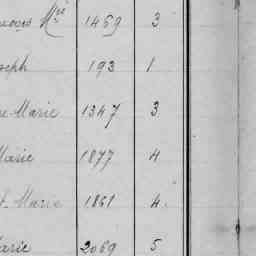 M^me 1469 3
seph 193 1
Marie 1347 3
Marie 1877 4
Marie 1861 4
Marie 2069 5